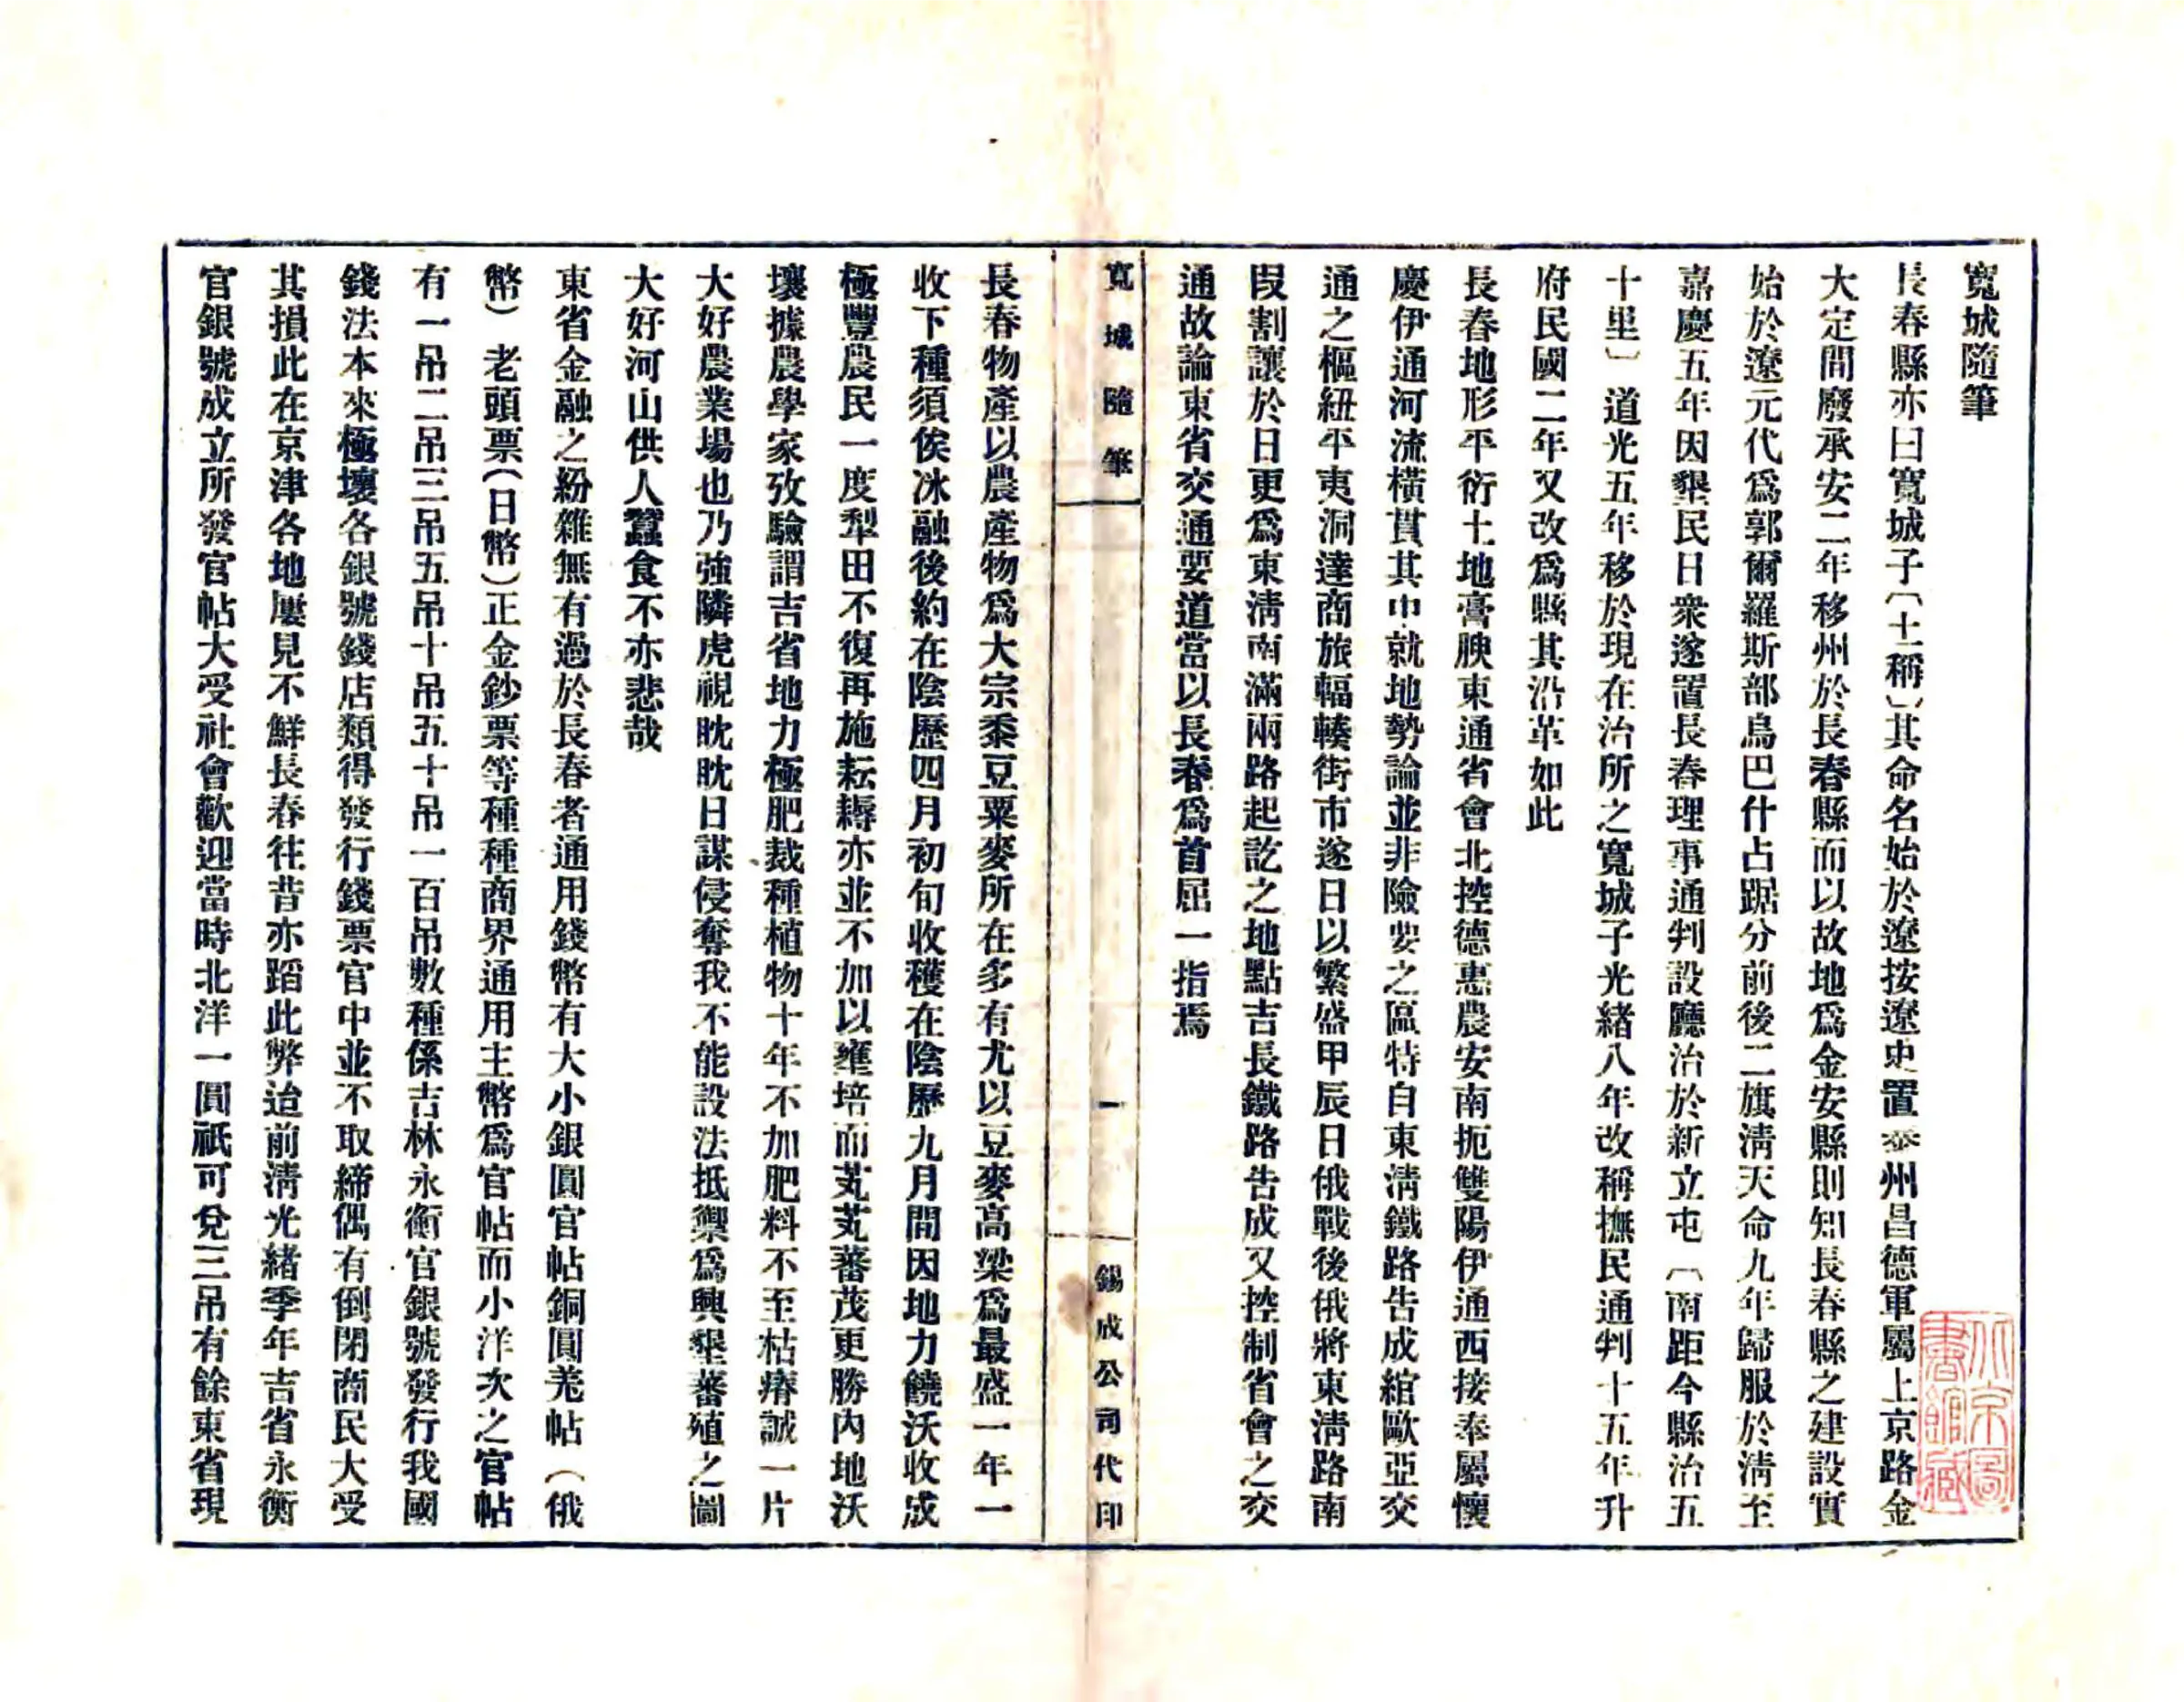 寬城隨筆
長春縣亦曰寬城子〔土稱〕其命名始於遼按遼史置泰州昌德軍屬上京路金
大定間廢承安二年移州於長春縣而以故地爲金安縣則知長春縣之建設實
始於遼元代爲郭爾羅斯部烏巴什占踞分前後二旗淸天命九年歸服於淸至
嘉慶五年因墾民日衆遂置長春理事通判設廳治於新立屯〔南距今縣治五
十里〕道光五年移於現在治所之寬城子光緒八年改稱撫民通判十五年升
府民國二年又改爲縣其沿革如此
長春地形平衍土地膏腴東通省會北控德惠農安南扼雙陽伊通西接奉屬懷
慶伊通河流橫貫其中就地勢論並非險要之區特自東淸鐵路告成綰歐亞交
通之樞紐平夷洞達商旅輻輳街市遂日以繁盛甲辰日俄戰後俄將東淸路南
段割讓於日更爲東淸南滿兩路起訖之地點吉長鐵路告成又控制省會之交
通故論東省交通要道當以長春爲首屈一指焉
寬城隨筆
一
錫成公司代印
長春物產以農產物爲大宗黍豆粟麥所在多有尤以豆麥高梁爲最盛一年一
收下種須俟冰融後約在陰歷四月初旬收穫在陰歷九月間因地力饒沃收成
極豐農民一度犁田不復再施耘耨亦並不加以壅培而芃芃蕃茂更勝內地沃
壤據農學家攷驗謂吉省地力極肥栽種植物十年不加肥料不至枯瘠誠一片
大好農業場也乃強隣虎視眈眈日謀侵奪我不能設法抵禦爲興墾蕃殖之圖
大好河山供人蠶食不亦悲哉
東省金融之紛雜無有過於長春者通用錢幣有大小銀圓官帖銅圓羌帖（俄
幣）老頭票(日幣)正金鈔票等種種商界通用主幣爲官帖而小洋次之官帖
有一吊二吊三吊五吊十吊五十吊一百吊數種係吉林永衡官銀號發行我國
錢法本來極壞各銀號錢店類得發行錢票官中並不取締偶有倒閉商民大受
其損此在京津各地屢見不鮮長春往昔亦蹈此弊迨前淸光緒季年吉省永衡
官銀號成立所發官帖大受社會歡迎當時北洋一圓祇可兌三吊有餘東省現
北京圖書館藏